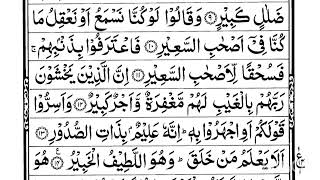 ضَلٰلٍ كَبِیْرٍ ۝۹ وَقَالُوْا لَوْ كُنَّا نَسْمَعُ اَوْ نَعْقِلُ مَا
كُنَّا فِیْۤ اَصْحٰبِ السَّعِیْرِ ۝۱۰ فَاعْتَرَفُوْا بِذَنْۢبِهِمْ ۚ
فَسُحْقًا لِّاَصْحٰبِ السَّعِیْرِ ۝۱۱ اِنَّ الَّذِیْنَ یَخْشَوْنَ
رَبَّهُمْ بِالْغَیْبِ لَهُمْ مَّغْفِرَةٌ وَّاَجْرٌ كَبِیْرٌ ۝۱۲ وَاَسِرُّوْا
قَوْلَكُمْ اَوِ اجْهَرُوْا بِهٖ ؕ اِنَّهٗ عَلِیْمٌۢ بِذَاتِ الصُّدُوْرِ ۝۱۳
اَلَا یَعْلَمُ مَنْ خَلَقَ ؕ وَهُوَ اللَّطِیْفُ الْخَبِیْرُ ۝۱۴ هُوَ